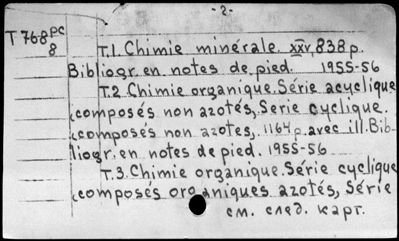 -2-
T 768 PC
8
T.1. Chimie minérale. xxv, 838 p.
Bibliogr. en notes de pied. 1955-56
T.2. Chimie organique. Série acyclique
(composés non azotés, Serie cyclique.
(composés non azotes, 1164 p. avec ill. Bib-
liogr. en notes de pied. 1955-56
T.3. Chimie organique. Série cyclique
(composés organiques azotés, Série
см. след. карт.